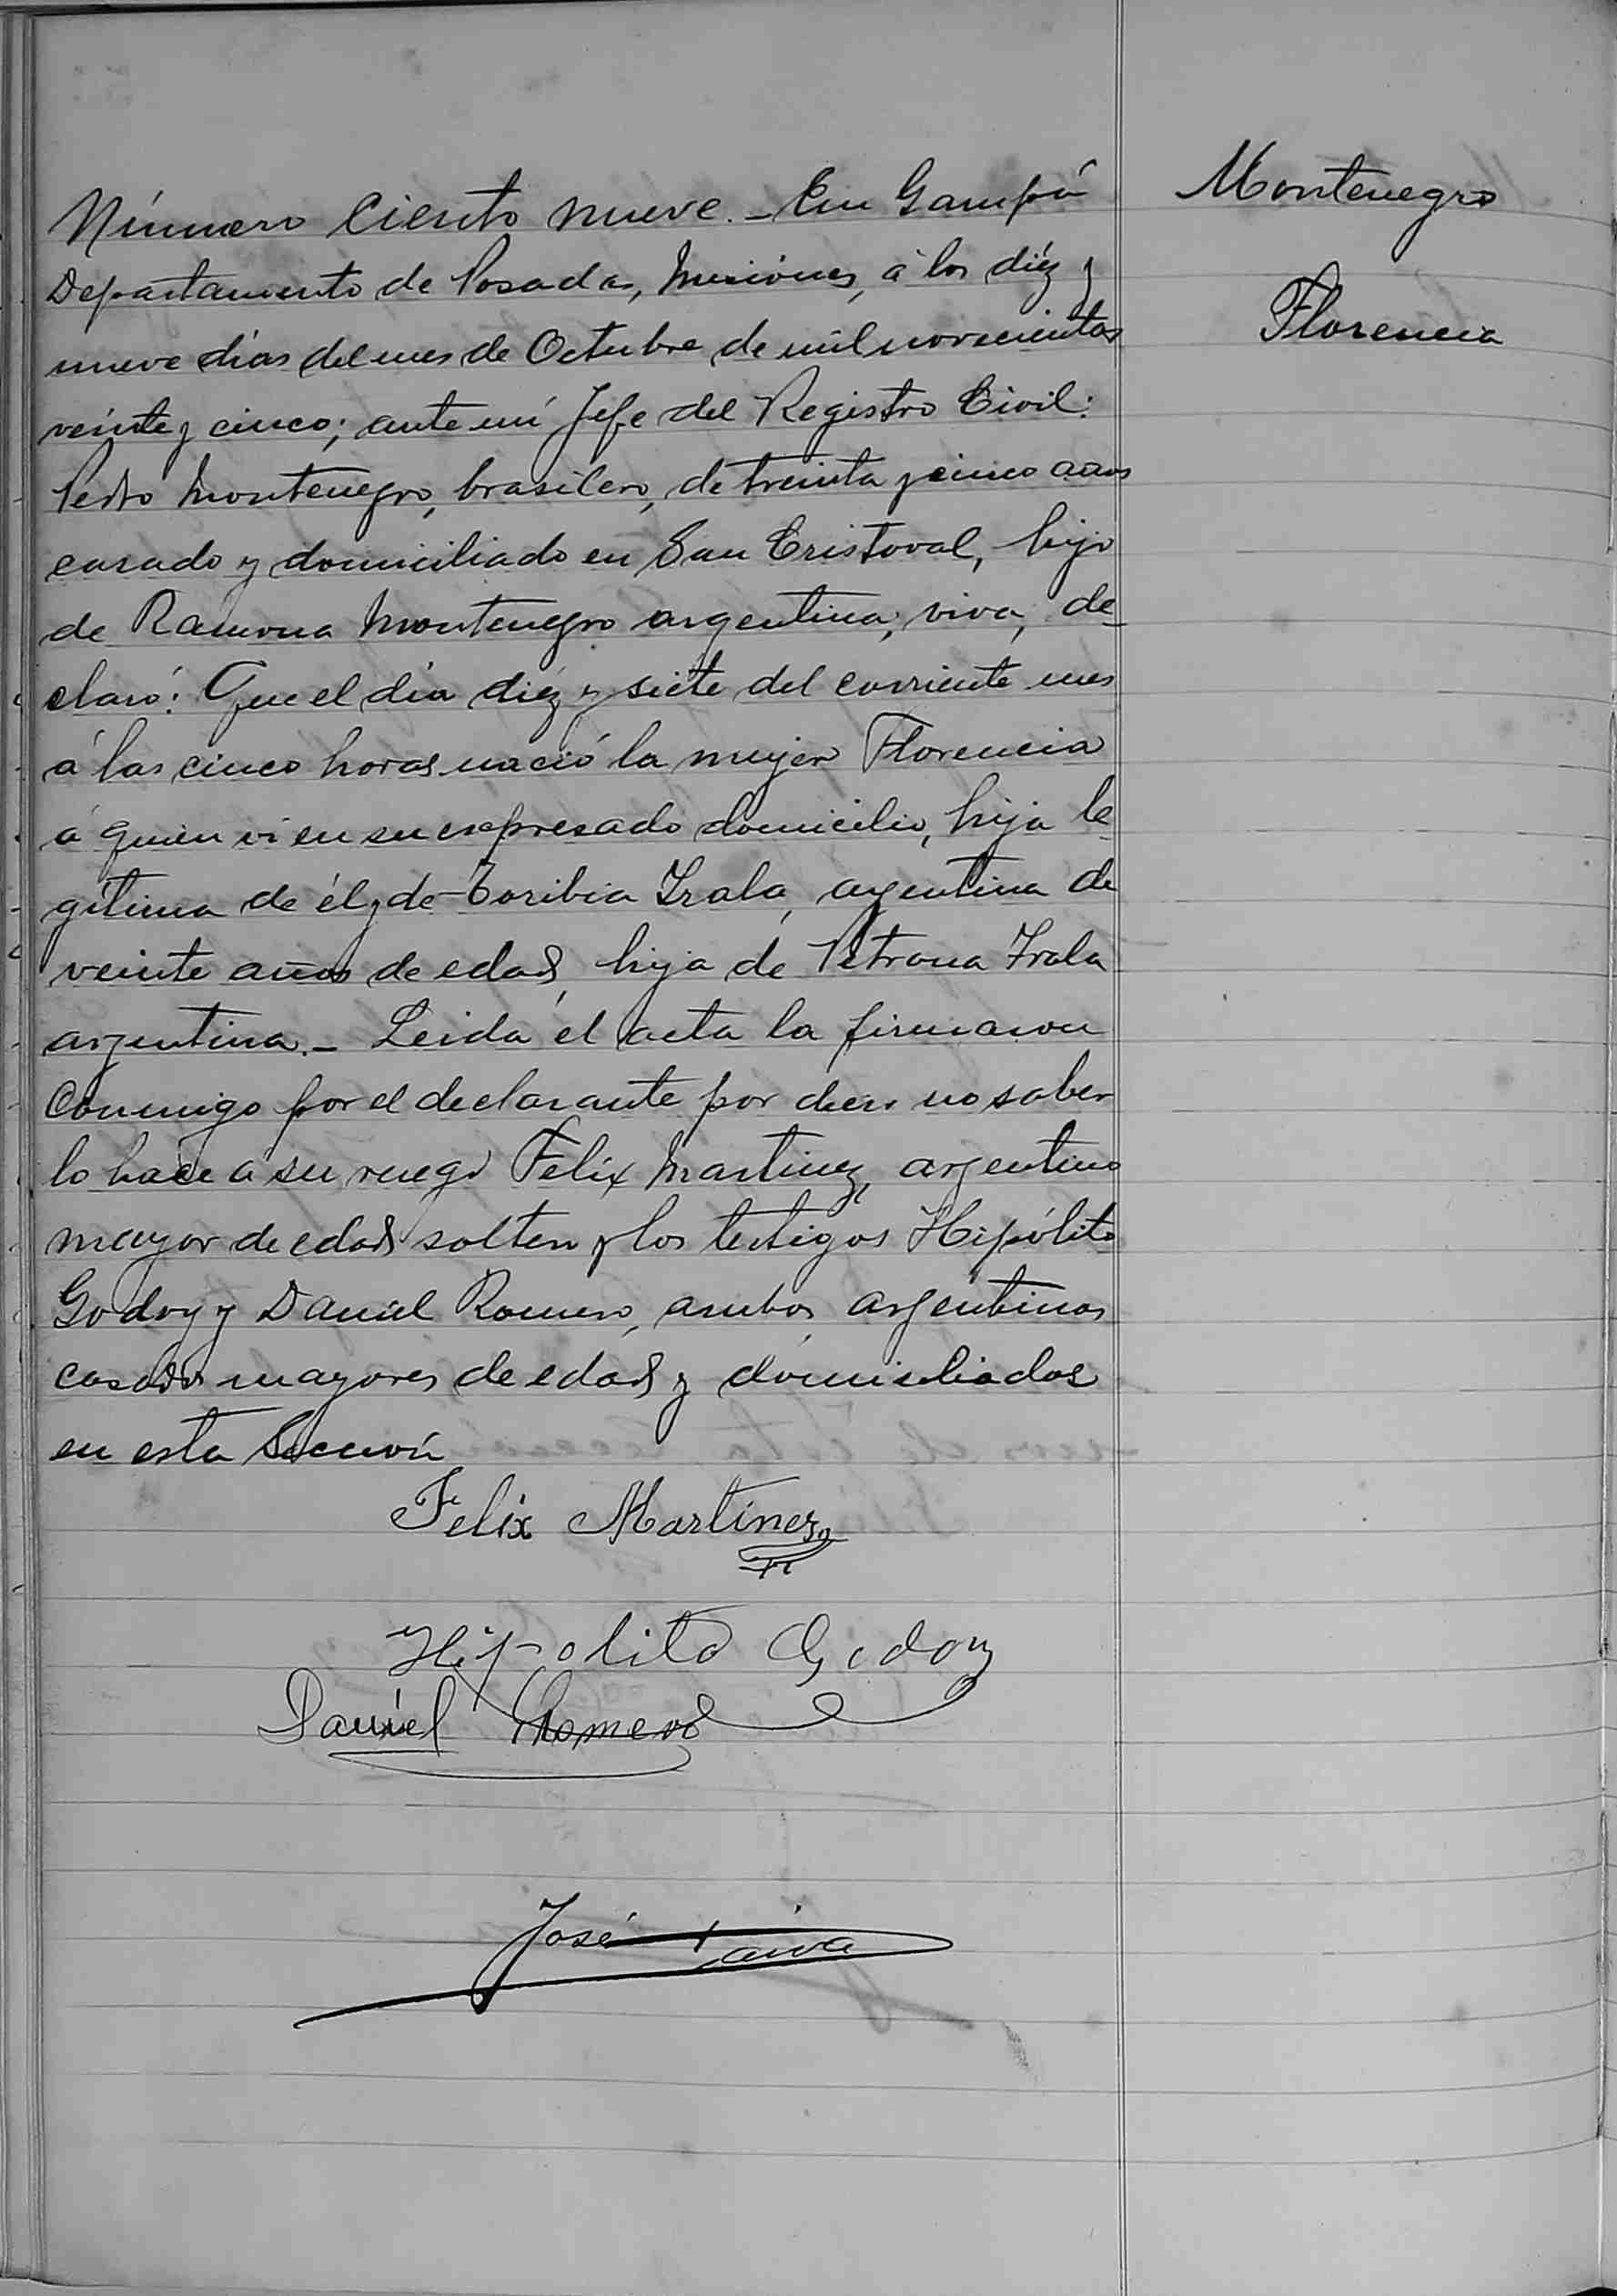 Montenegro
Florencia
Número Ciento nueve. - En Garupá
Departamento de Posadas, Misiones, á los diéz y
nueve días del mes de Octubre de mil novecientos
veinte y cinco; ante mí Jefe del Registro Civil:
Pedro Montenegro, brasilero, de treinta y cinco años
casado y domiciliado en San Cristoval, hijo
de Ramona Montenegro argentina, viva, de
claró: Que el día diéz y siete del corriente mes
á las cinco horas nació la mujer Florencia
á quien ví en su expresado domicilio, hija le
gítima de él y de Toribia Irala, argentina de
veinte años de edad, hija de Petrona Irala
argentina. - Leida el acta la firmaron
Conmigo por el declarante por decir no saber
lo hace á su ruego Felix Martinez, argentino
mayor de edad soltero y los testigos Hipólito
Godoy y Daniel Romero, ambos argentinos
casados mayores de edad y domiciliados
en esta Sección
Felix Martinez
Hipolito Godoy
Daniel Romero
José